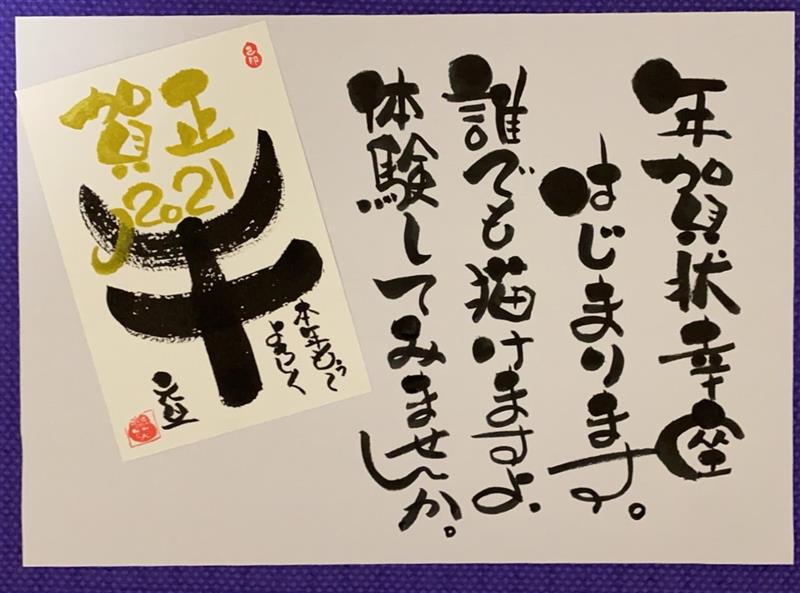 年賀状幸座
はじまります。
誰でも描けますよ。
体験してみませんか。
賀正
2021
牛
本年も
よろしく